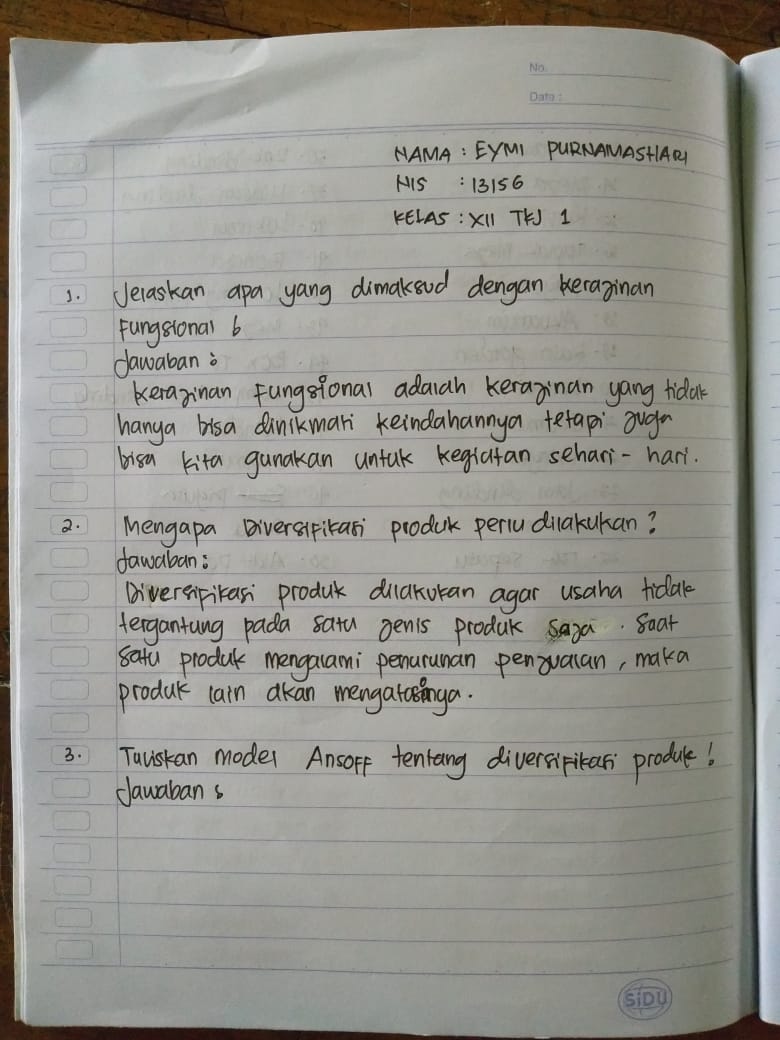 No.
Date :
NAMA : EYMI PURNAMASHARI
NIS : 13156
KELAS : XII TKJ 1
1. Jelaskan apa yang dimaksud dengan kerajinan
Fungsional
Jawaban :
Kerajinan Fungsional adalah kerajinan yang tidak
hanya bisa dinikmati keindahannya tetapi juga
bisa kita gunakan untuk kegiatan sehari - hari.
2. Mengapa Diversifikasi produk perlu dilakukan ?
Jawaban :
Diversifikasi produk dilakukan agar usaha tidak
tergantung pada satu jenis produk saja . Saat
satu produk mengalami penurunan penjualan , maka
produk lain akan mengatasinya .
3. Tuliskan model Ansoff tentang diversifikasi produk !
Jawaban :
SiDU